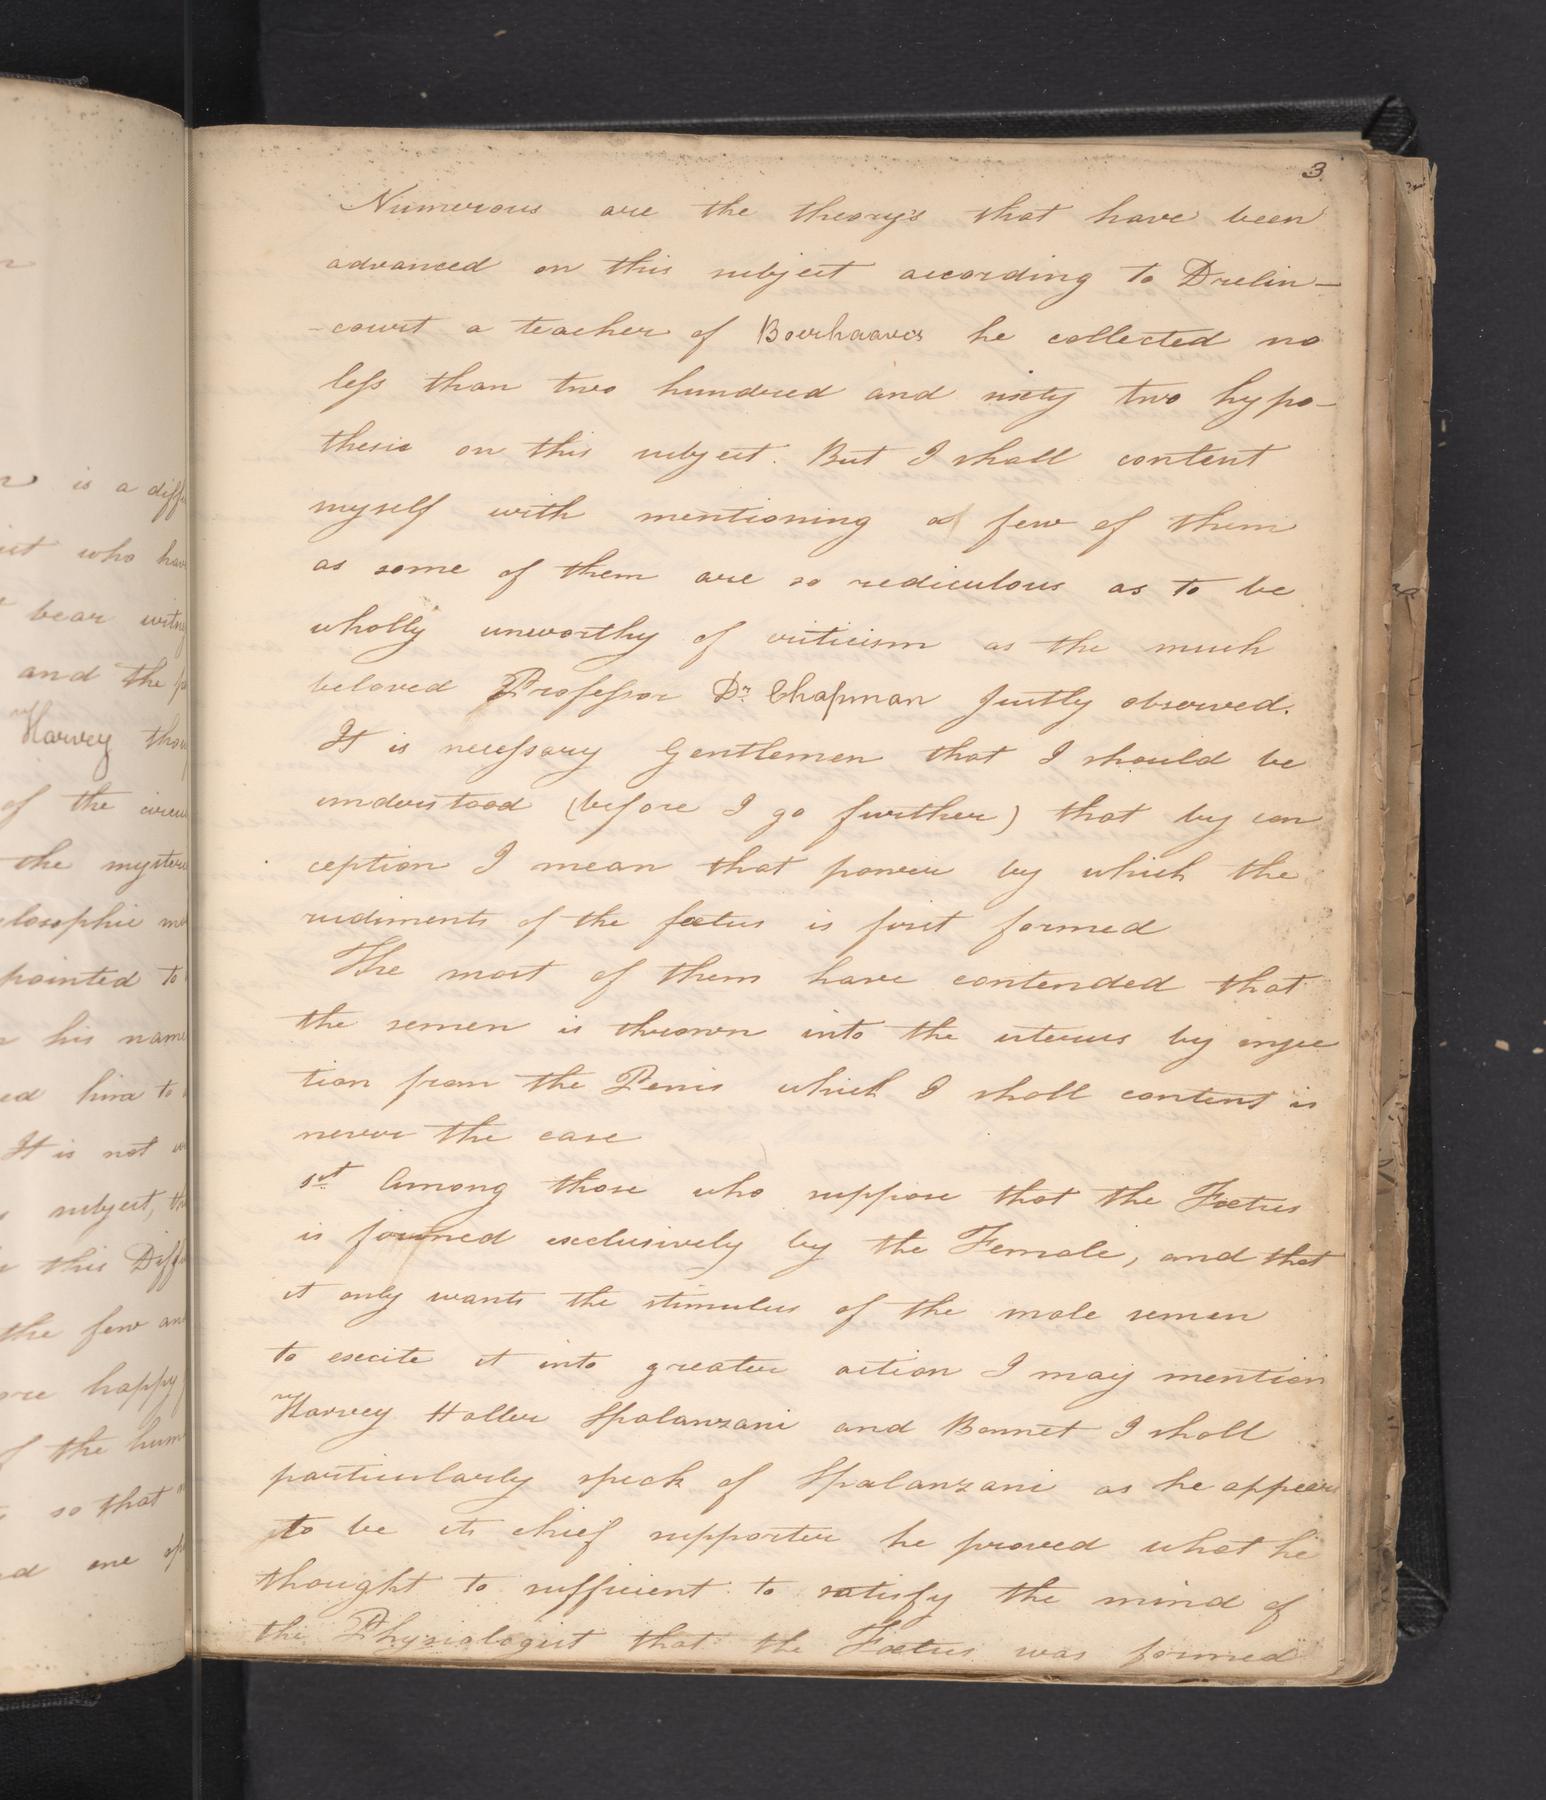 3
Numerous are the theory's that have been
advanced on this subject according to Drelin-
-court a teacher of Boerhaaves he collected no
less than two hundred and sixty two hypo-
thesis on this subject. But I shall content
myself with mentioning a few of them
as some of them are so rediculous as to be
wholly unworthy of criticism as the much
beloved Professor Dr Chapman justly observed.
It is necessary Gentlemen that I should be
understood (before I go further) that by con
ception I mean that power by which the
rudiments of the fœtus is first formed
The most of them have contended that
the semen is thrown into the uterus by injec
tion from the Penis which I shall content is
never the case
1st Among those who suppose that the Fœtus
is formed exclusively by the Female, and that
it only wants the stimulus of the male semen
to excite it into greater action I may mention
Harvey Haller Spalanzani and Bonnet I shall
particularly speck of Spalanzani as he appears
to be its chief supporter he proved what he
thought to sufficient to satisfy the mind of
the Physiologist that the Fœtus was formed
is a
who
bear
and the
Harvey
of the
the
pointed to
his name
ed him to
It is not
subject,
this
the few
happy
of the
so that
one